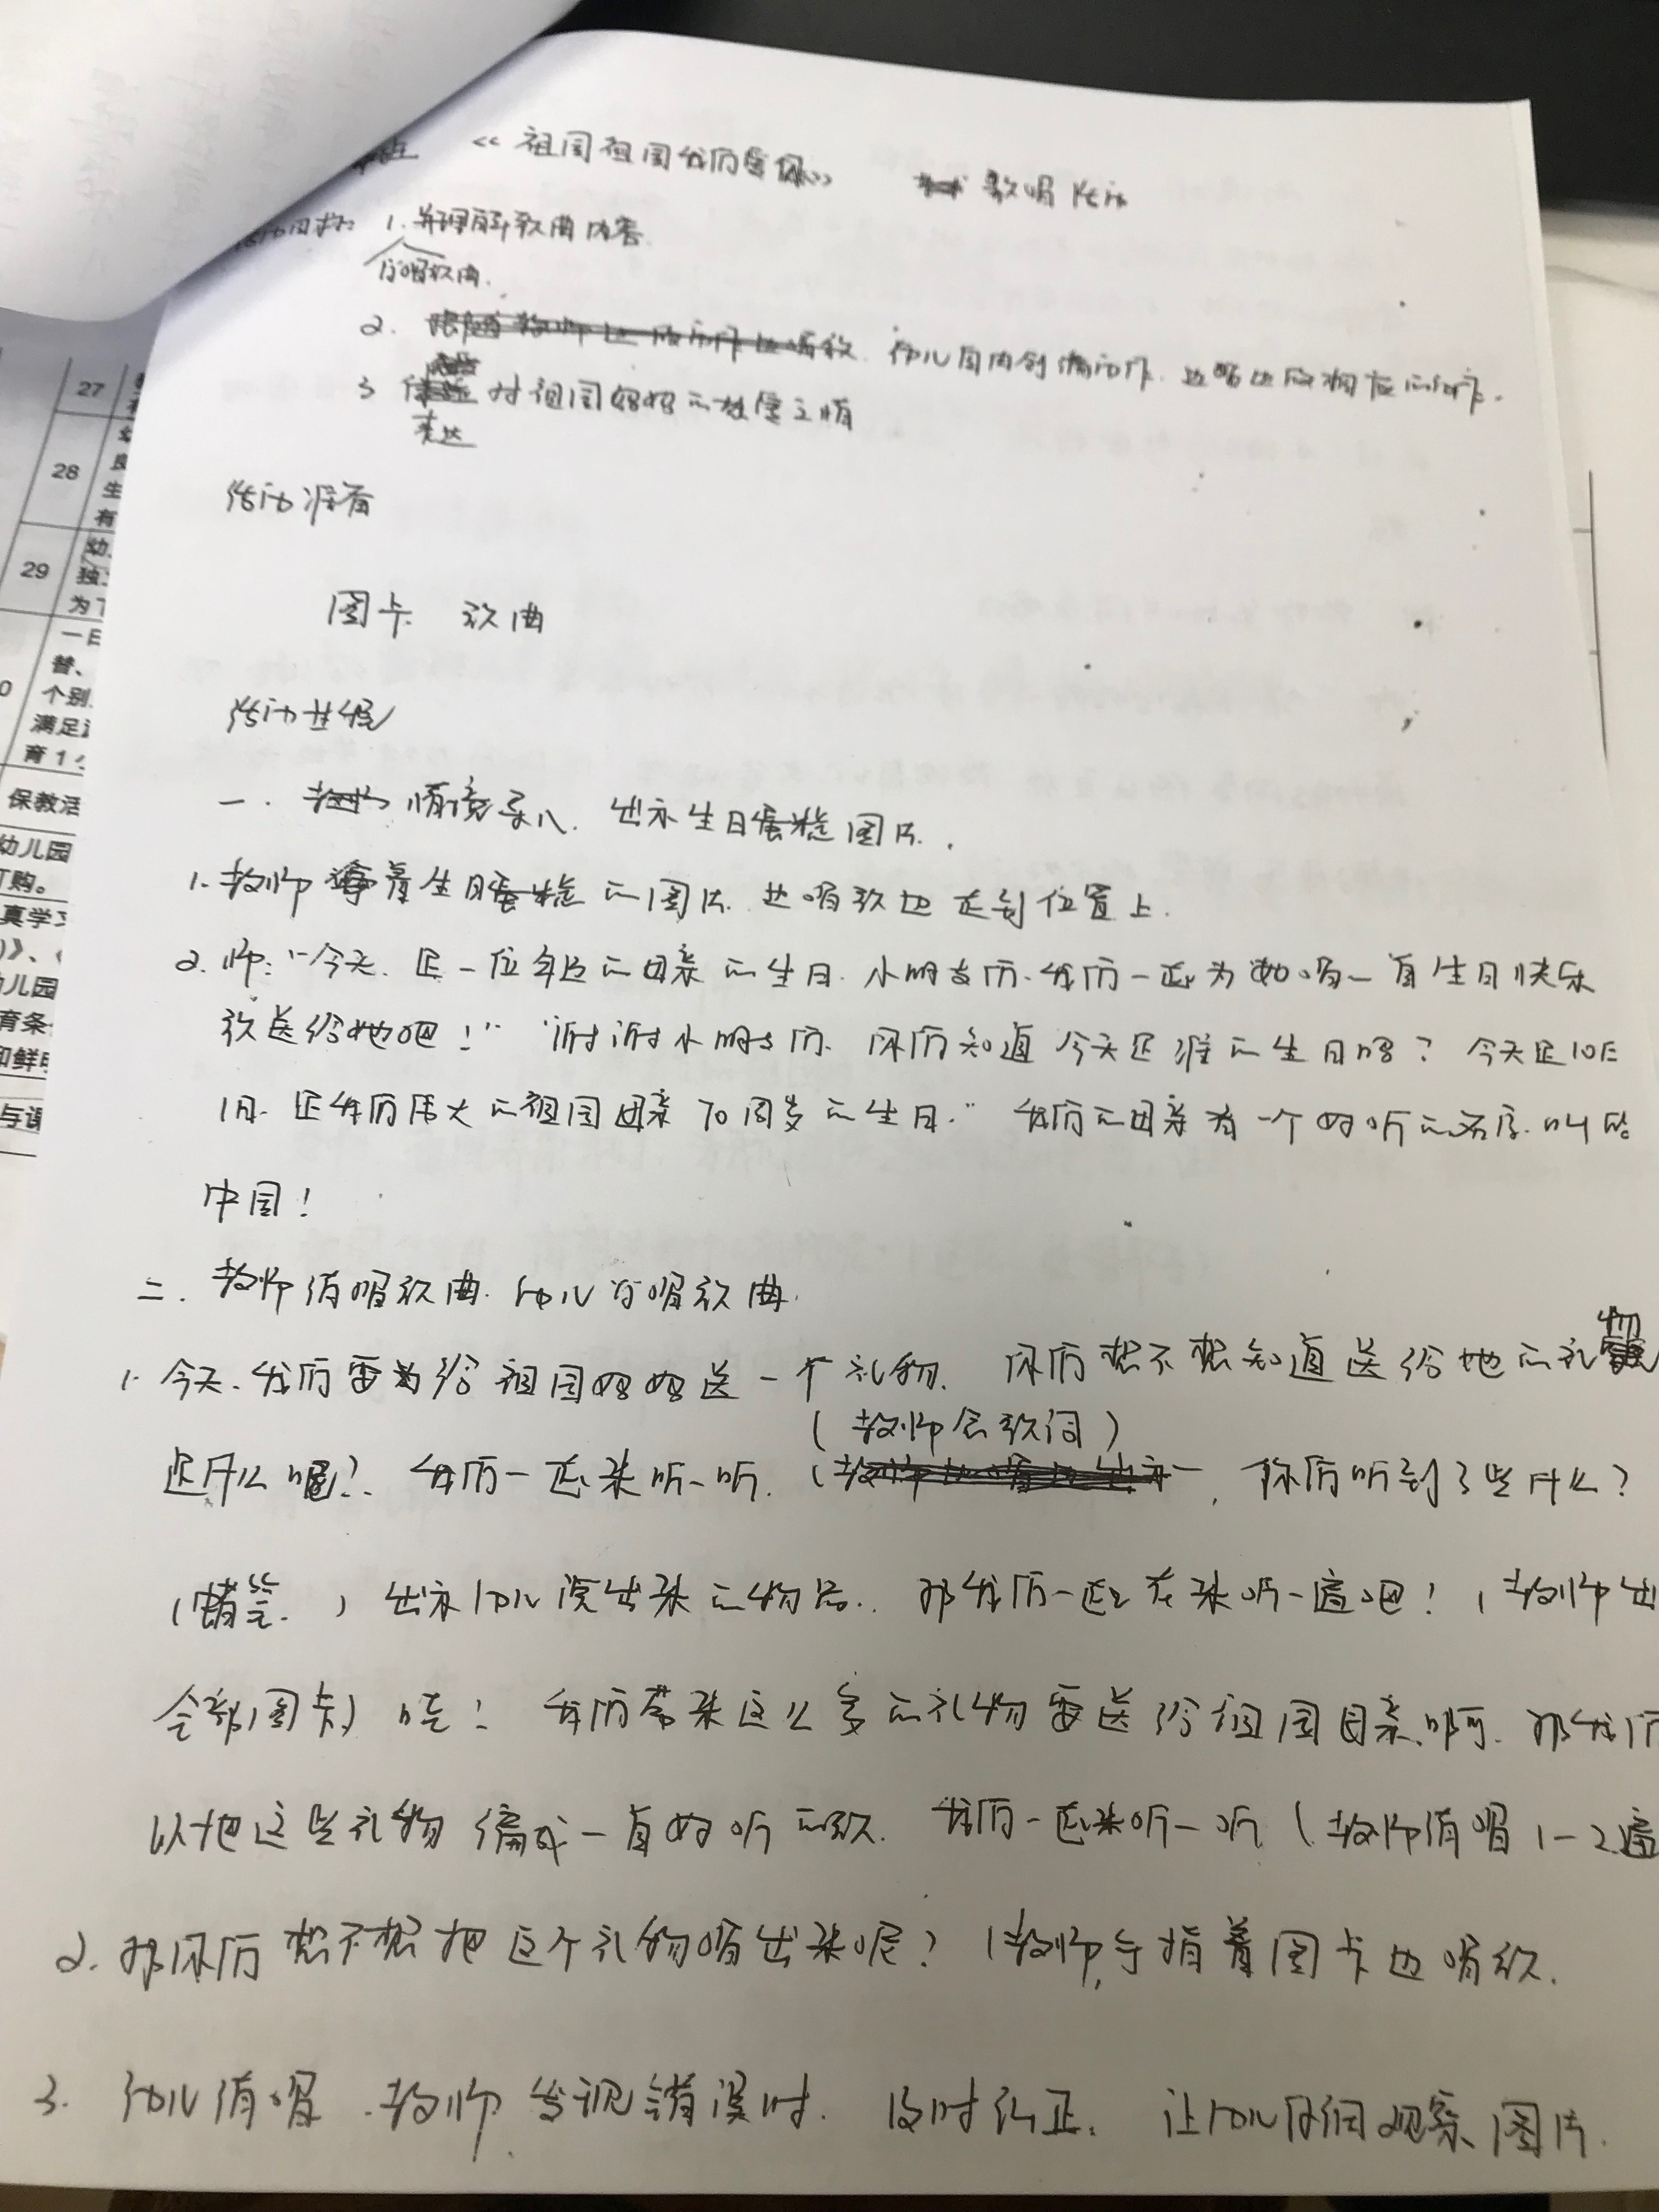 《祖国祖国我们爱你》 歌唱活动
活动目标: 1.并理解歌曲内容.
学唱歌曲.
2. 幼儿园内创编动作. 边唱边做相应的动作.
3 表达 对祖国妈妈的热爱之情
活动准备
图卡 歌曲
活动过程
一. 情境导入. 出示生日蛋糕图片.
1. 教师拿着生日蛋糕的图片. 边唱歌边走到位置上.
2. 师:“今天. 是一位年迈的母亲的生日. 小朋友们. 我们一起为她唱一首生日快乐
歌送给她吧!” “谢谢小朋友们. 你们知道今天是谁的生日吗? 今天是10月
1日. 是我们伟大的祖国母亲70周岁的生日.” 我们的母亲有一个好听的名字. 叫
中国!
二. 教师清唱歌曲. 幼儿学唱歌曲.
1. 今天. 我们要给祖国妈妈送一个礼物. 你们想不想知道送给她的礼物
(教师念歌词)
是什么呢? 我们一起来听一听. 你们听到了些什么?
(幼儿答.) 出示幼儿说出来的物品. 那我们一起在来听一遍吧! (教师出
全部图卡) 哇! 我们带来这么多的礼物要送给祖国母亲啊. 那我们
以把这些礼物编成一首好听的歌. 我们一起来听一听 (教师清唱1-2遍
2. 那你们想不想把这个礼物唱出来呢? (教师手指着图卡边唱歌.
3. 幼儿清唱. 教师发现错误时. 及时纠正. 让幼儿仔细观察图片.
27
28
良
生
有
29
幼
独
为了
一日
替、
个别
满足
育1
保教活
幼儿园
订购。
真学习
》、
幼儿园
育条
和鲜
与课